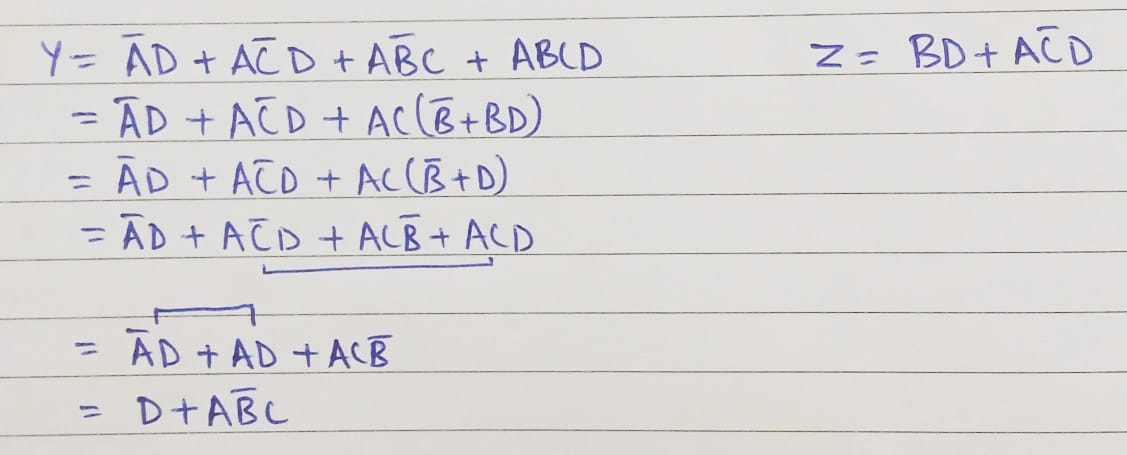 Y = A̅D + AC̅D + AB̅C + ABCD
Z = BD + AC̅D
= A̅D + AC̅D + AC(B̅+BD)
= A̅D + AC̅D + AC(B̅+D)
= A̅D + AC̅D + ACB̅ + ACD
= A̅D + AD + ACB̅
= D + AB̅C